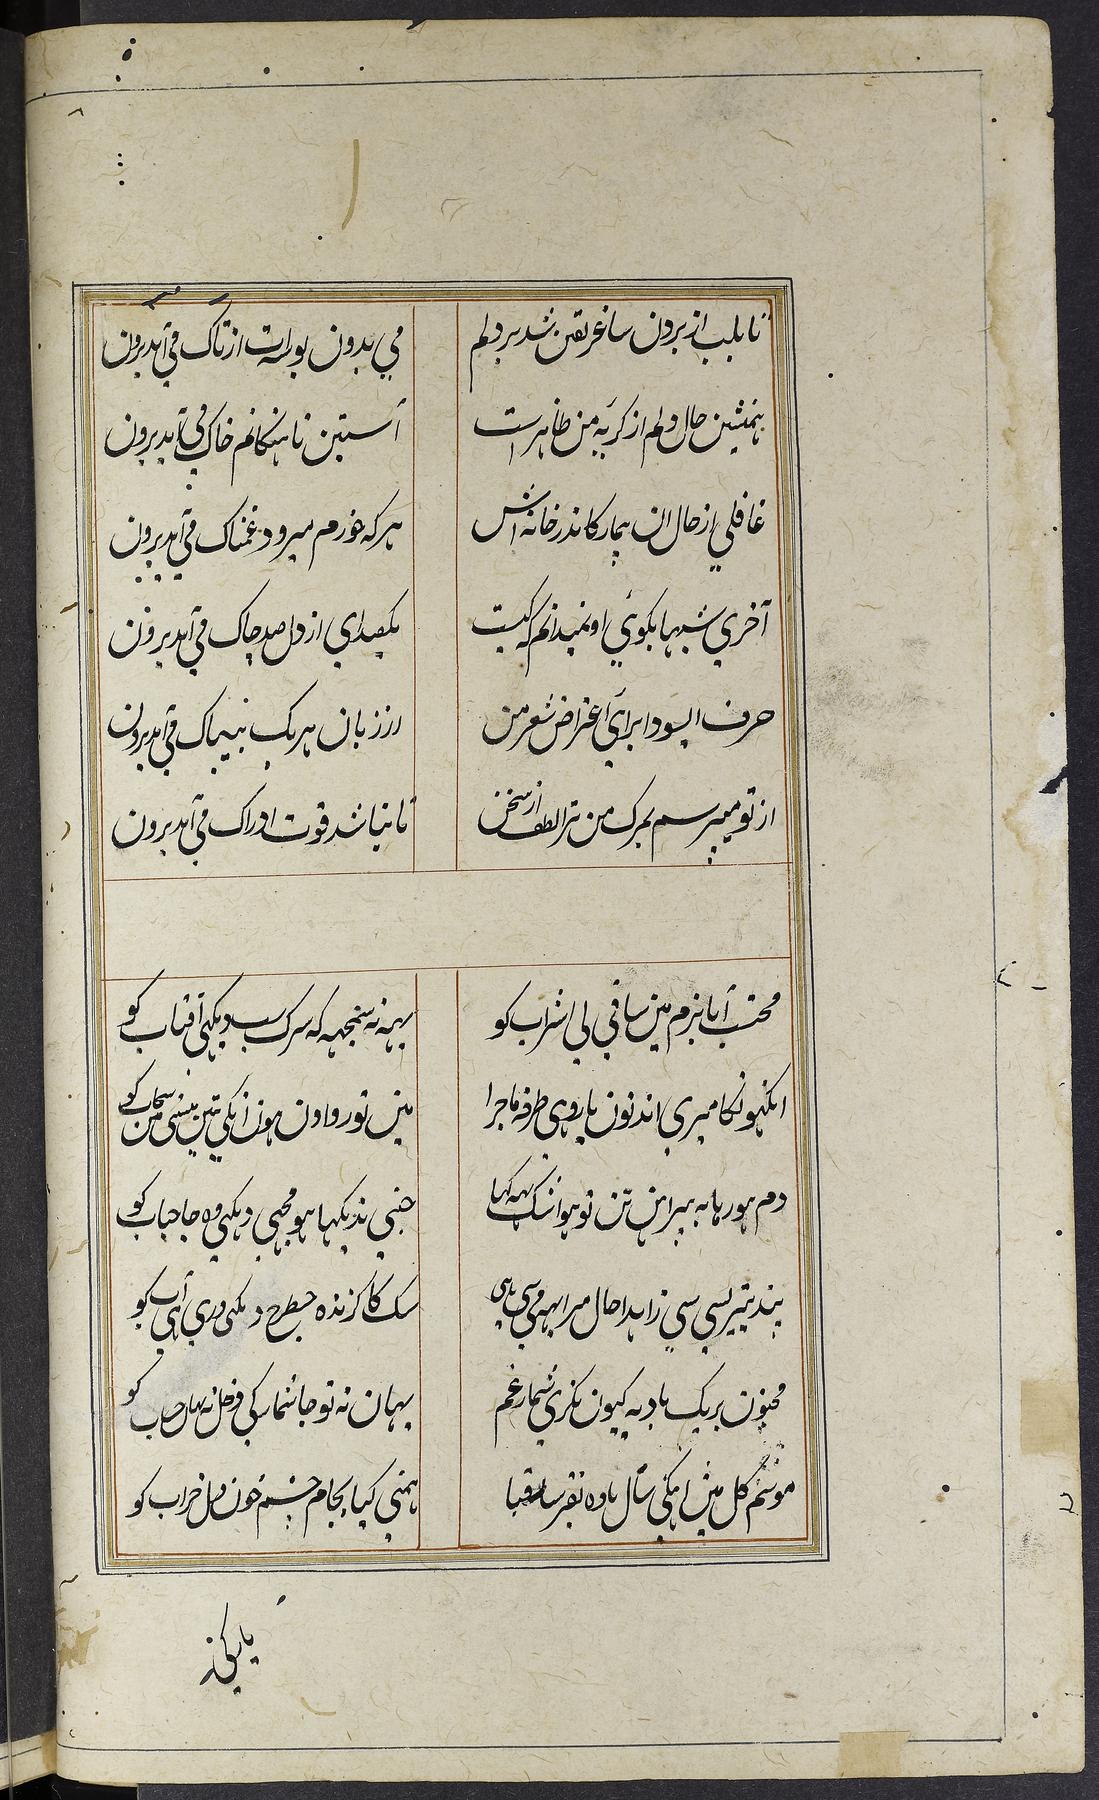 تا بلب از برون ساغر یقین شد بر دلم
می بدون بوسه‌ات از تاک می‌آید برون
همنشین حال دلم از کریهٔ من ظاهر است
آستین نا هنکانم خاک می‌آید برون
غافلی از حال ان بیمار کاندر خانه‌اش
هر که خورم میرود غمناک می‌آید برون
آخری شبها بکوئی او نمیدانم که کیست
یکصدای از دل صد چاک می‌آید برون
حرف ای سودا برای اعتراض شعر من
از زبان هر یک بیباک می‌آید برون
از تو میپرسم بمرک من ترا لطف از سخن
تا نباشد قوت ادراک می‌آید برون
محتسب آیا بزم مین ساقی لی ا شراب کو
یهه نه سمجهه که سرک سب دیکهی آفتاب کو
انکهونکا میری اندنون یارو هی طرفه ماجرا
مین تو رو اون هون انکی تین هنستی مین سحاب کو
دم هو رها به پیراهن تن تو هو اشک بهه کیا
جنبی ندیکها هو مجهی دیکهی وه جا حباب کو
پند تیری سی زاهدا حال میرا یهه می سی هی
سک کا کزنده جسطرح دیکهی دری هی آب کو
مجنون بریک بادیه کیون نکری شمار غم
یهان نه تو جا شمار کی دخل نه یهان حساب کو
موسم کل مین انکی سال باده بغیر ساقیا
همنی کیا بجام چشم خون دل خراب کو